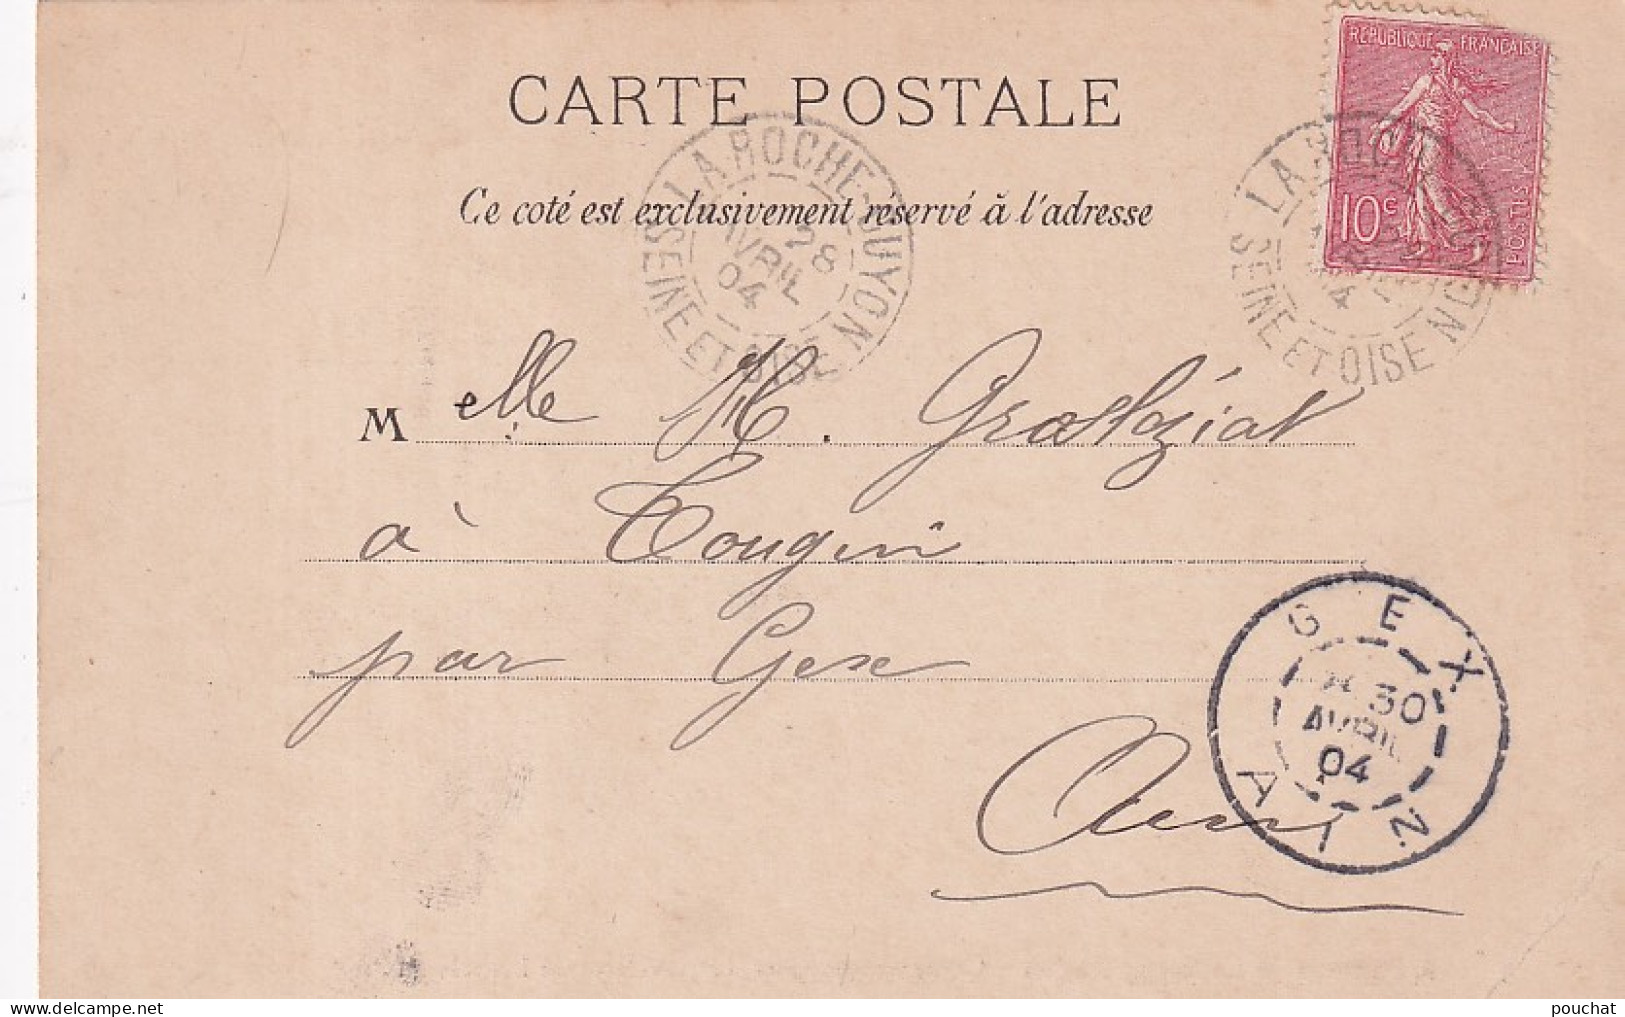 CARTE POSTALE
Ce coté est exclusivement réservé à l'adresse
REPUBLIQUE FRANÇAISE
10c
POSTES
LA ROCHE-GUYON
28
AVRIL
04
SEINE ET OISE
LA ROCHE GUYON
SEINE ET OISE
Melle M.
à Tougin
par Gex
Ain
GEX
30
AVRIL
04
AIN
www.delcampe.net
pouchat